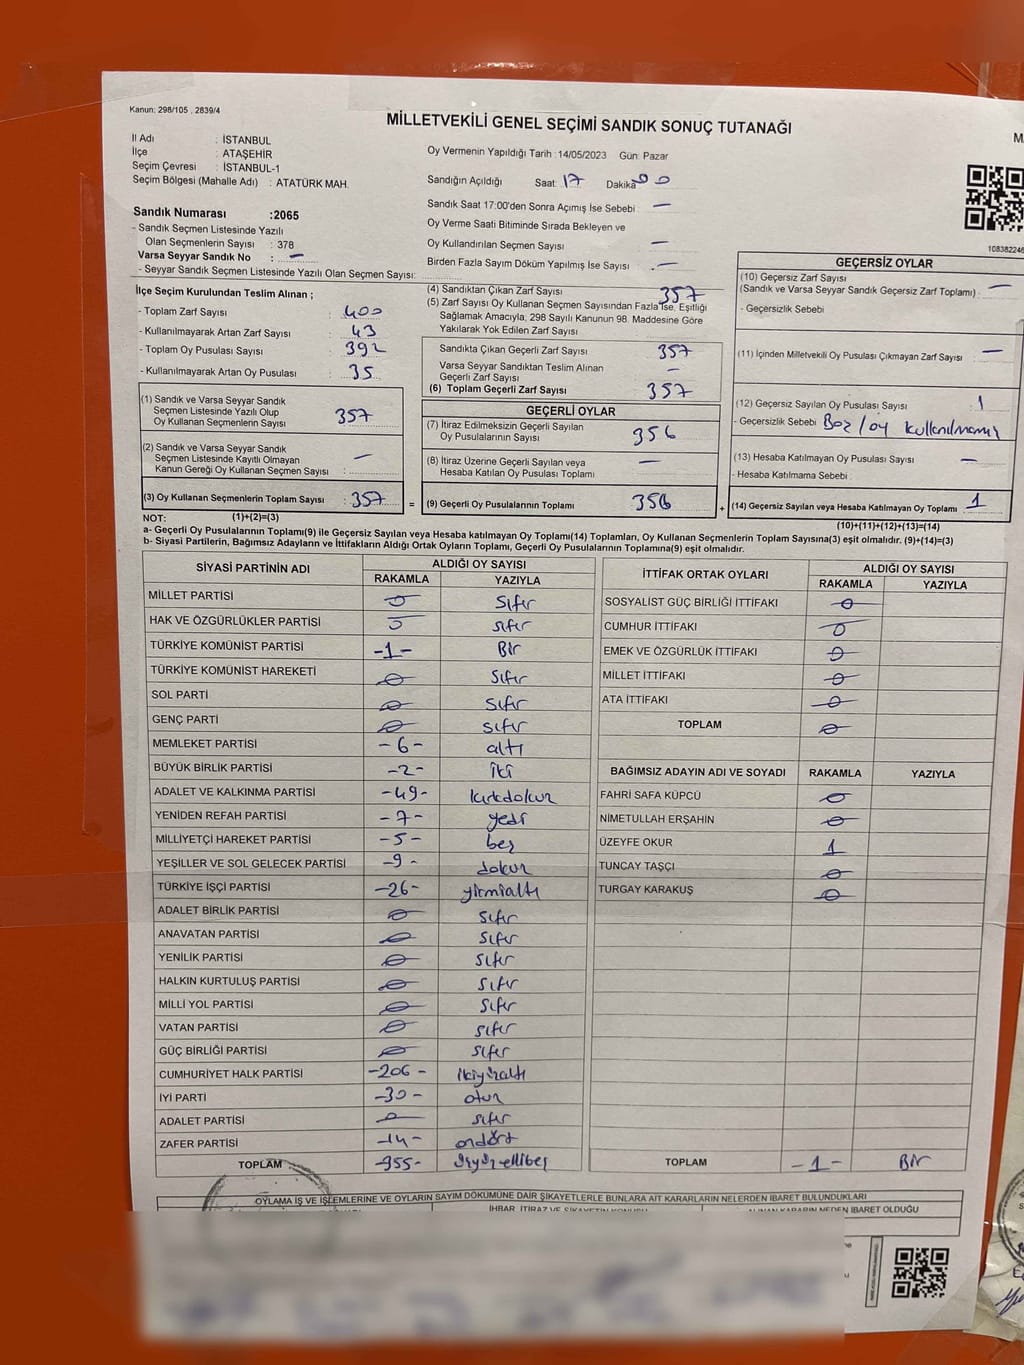 Kanun: 298/105 , 2839/4
MİLLETVEKİLİ GENEL SEÇİMİ SANDIK SONUÇ TUTANAĞI
İl Adı : İSTANBUL
İlçe : ATAŞEHİR
Seçim Çevresi : İSTANBUL-1
Seçim Bölgesi (Mahalle Adı) : ATATÜRK MAH.
Sandık Numarası :2065
- Sandık Seçmen Listesinde Yazılı
Olan Seçmenlerin Sayısı : 378
Varsa Seyyar Sandık No : —
- Seyyar Sandık Seçmen Listesinde Yazılı Olan Seçmen Sayısı:
Oy Vermenin Yapıldığı Tarih :14/05/2023 Gün: Pazar
Sandığın Açıldığı Saat: 17 Dakika 00
Sandık Saat 17:00'den Sonra Açımış İse Sebebi —
Oy Verme Saati Bitiminde Sırada Bekleyen ve
Oy Kullandırılan Seçmen Sayısı —
Birden Fazla Sayım Döküm Yapılmış İse Sayısı —
İlçe Seçim Kurulundan Teslim Alınan ;
- Toplam Zarf Sayısı : 400
- Kullanılmayarak Artan Zarf Sayısı : 43
- Toplam Oy Pusulası Sayısı : 392
- Kullanılmayarak Artan Oy Pusulası : 35
(1) Sandık ve Varsa Seyyar Sandık
Seçmen Listesinde Yazılı Olup
Oy Kullanan Seçmenlerin Sayısı : 357
(2) Sandık ve Varsa Seyyar Sandık
Seçmen Listesinde Kayıtlı Olmayan
Kanun Gereği Oy Kullanan Seçmen Sayısı : —
(3) Oy Kullanan Seçmenlerin Toplam Sayısı : 357
(1)+(2)=(3)
(4) Sandıktan Çıkan Zarf Sayısı 357
(5) Zarf Sayısı Oy Kullanan Seçmen Sayısından Fazla İse, Eşitliği
Sağlamak Amacıyla, 298 Sayılı Kanunun 98. Maddesine Göre
Yakılarak Yok Edilen Zarf Sayısı
Sandıkta Çıkan Geçerli Zarf Sayısı 357
Varsa Seyyar Sandıktan Teslim Alınan
Geçerli Zarf Sayısı —
(6) Toplam Geçerli Zarf Sayısı 357
GEÇERLİ OYLAR
(7) İtiraz Edilmeksizin Geçerli Sayılan
Oy Pusulalarının Sayısı 356
(8) İtiraz Üzerine Geçerli Sayılan veya
Hesaba Katılan Oy Pusulası Toplamı —
= (9) Geçerli Oy Pusulalarının Toplamı 356
GEÇERSİZ OYLAR
(10) Geçersiz Zarf Sayısı
(Sandık ve Varsa Seyyar Sandık Geçersiz Zarf Toplamı) : —
- Geçersizlik Sebebi
(11) İçinden Milletvekili Oy Pusulası Çıkmayan Zarf Sayısı : —
(12) Geçersiz Sayılan Oy Pusulası Sayısı : 1
- Geçersizlik Sebebi Boş/oy kullanılmamış
(13) Hesaba Katılmayan Oy Pusulası Sayısı : —
- Hesaba Katılmama Sebebi :
+ (14) Geçersiz Sayılan veya Hesaba Katılmayan Oy Toplamı 1
(10)+(11)+(12)+(13)=(14)
NOT:
a- Geçerli Oy Pusulalarının Toplamı(9) ile Geçersiz Sayılan veya Hesaba katılmayan Oy Toplamı(14) Toplamları, Oy Kullanan Seçmenlerin Toplam Sayısına(3) eşit olmalıdır. (9)+(14)=(3)
b- Siyasi Partilerin, Bağımsız Adayların ve İttifakların Aldığı Ortak Oyların Toplamı, Geçerli Oy Pusulalarının Toplamına(9) eşit olmalıdır.
SİYASİ PARTİNİN ADI ALDIĞI OY SAYISI
RAKAMLA YAZIYLA
MİLLET PARTİSİ 0 Sıfır
HAK VE ÖZGÜRLÜKLER PARTİSİ 0 sıfır
TÜRKİYE KOMÜNİST PARTİSİ -1- Bir
TÜRKİYE KOMÜNİST HAREKETİ 0 Sıfır
SOL PARTİ 0 sıfır
GENÇ PARTİ 0 sıfır
MEMLEKET PARTİSİ -6- altı
BÜYÜK BİRLİK PARTİSİ -2- iki
ADALET VE KALKINMA PARTİSİ -49- kırkdokuz
YENİDEN REFAH PARTİSİ -7- yedi
MİLLİYETÇİ HAREKET PARTİSİ -5- beş
YEŞİLLER VE SOL GELECEK PARTİSİ -9- dokuz
TÜRKİYE İŞÇİ PARTİSİ -26- yirmialtı
ADALET BİRLİK PARTİSİ 0 sıfır
ANAVATAN PARTİSİ 0 sıfır
YENİLİK PARTİSİ 0 sıfır
HALKIN KURTULUŞ PARTİSİ 0 sıfır
MİLLİ YOL PARTİSİ 0 sıfır
VATAN PARTİSİ 0 sıfır
GÜÇ BİRLİĞİ PARTİSİ 0 sıfır
CUMHURİYET HALK PARTİSİ -206- ikiyüzaltı
İYİ PARTİ -30- otuz
ADALET PARTİSİ 0 sıfır
ZAFER PARTİSİ -14- ondört
TOPLAM -355- üçyüzellibeş
İTTİFAK ORTAK OYLARI ALDIĞI OY SAYISI
RAKAMLA YAZIYLA
SOSYALİST GÜÇ BİRLİĞİ İTTİFAKI 0
CUMHUR İTTİFAKI 0
EMEK VE ÖZGÜRLÜK İTTİFAKI 0
MİLLET İTTİFAKI 0
ATA İTTİFAKI 0
TOPLAM 0
BAĞIMSIZ ADAYIN ADI VE SOYADI RAKAMLA YAZIYLA
FAHRİ SAFA KÜPCÜ 0
NİMETULLAH ERŞAHİN 0
ÜZEYFE OKUR 1
TUNCAY TAŞÇI 0
TURGAY KARAKUŞ 0
TOPLAM -1- Bir
OYLAMA İŞ VE İŞLEMLERİNE VE OYLARIN SAYIM DÖKÜMÜNE DAİR ŞİKAYETLERLE BUNLARA AİT KARARLARIN NELERDEN İBARET BULUNDUKLARI